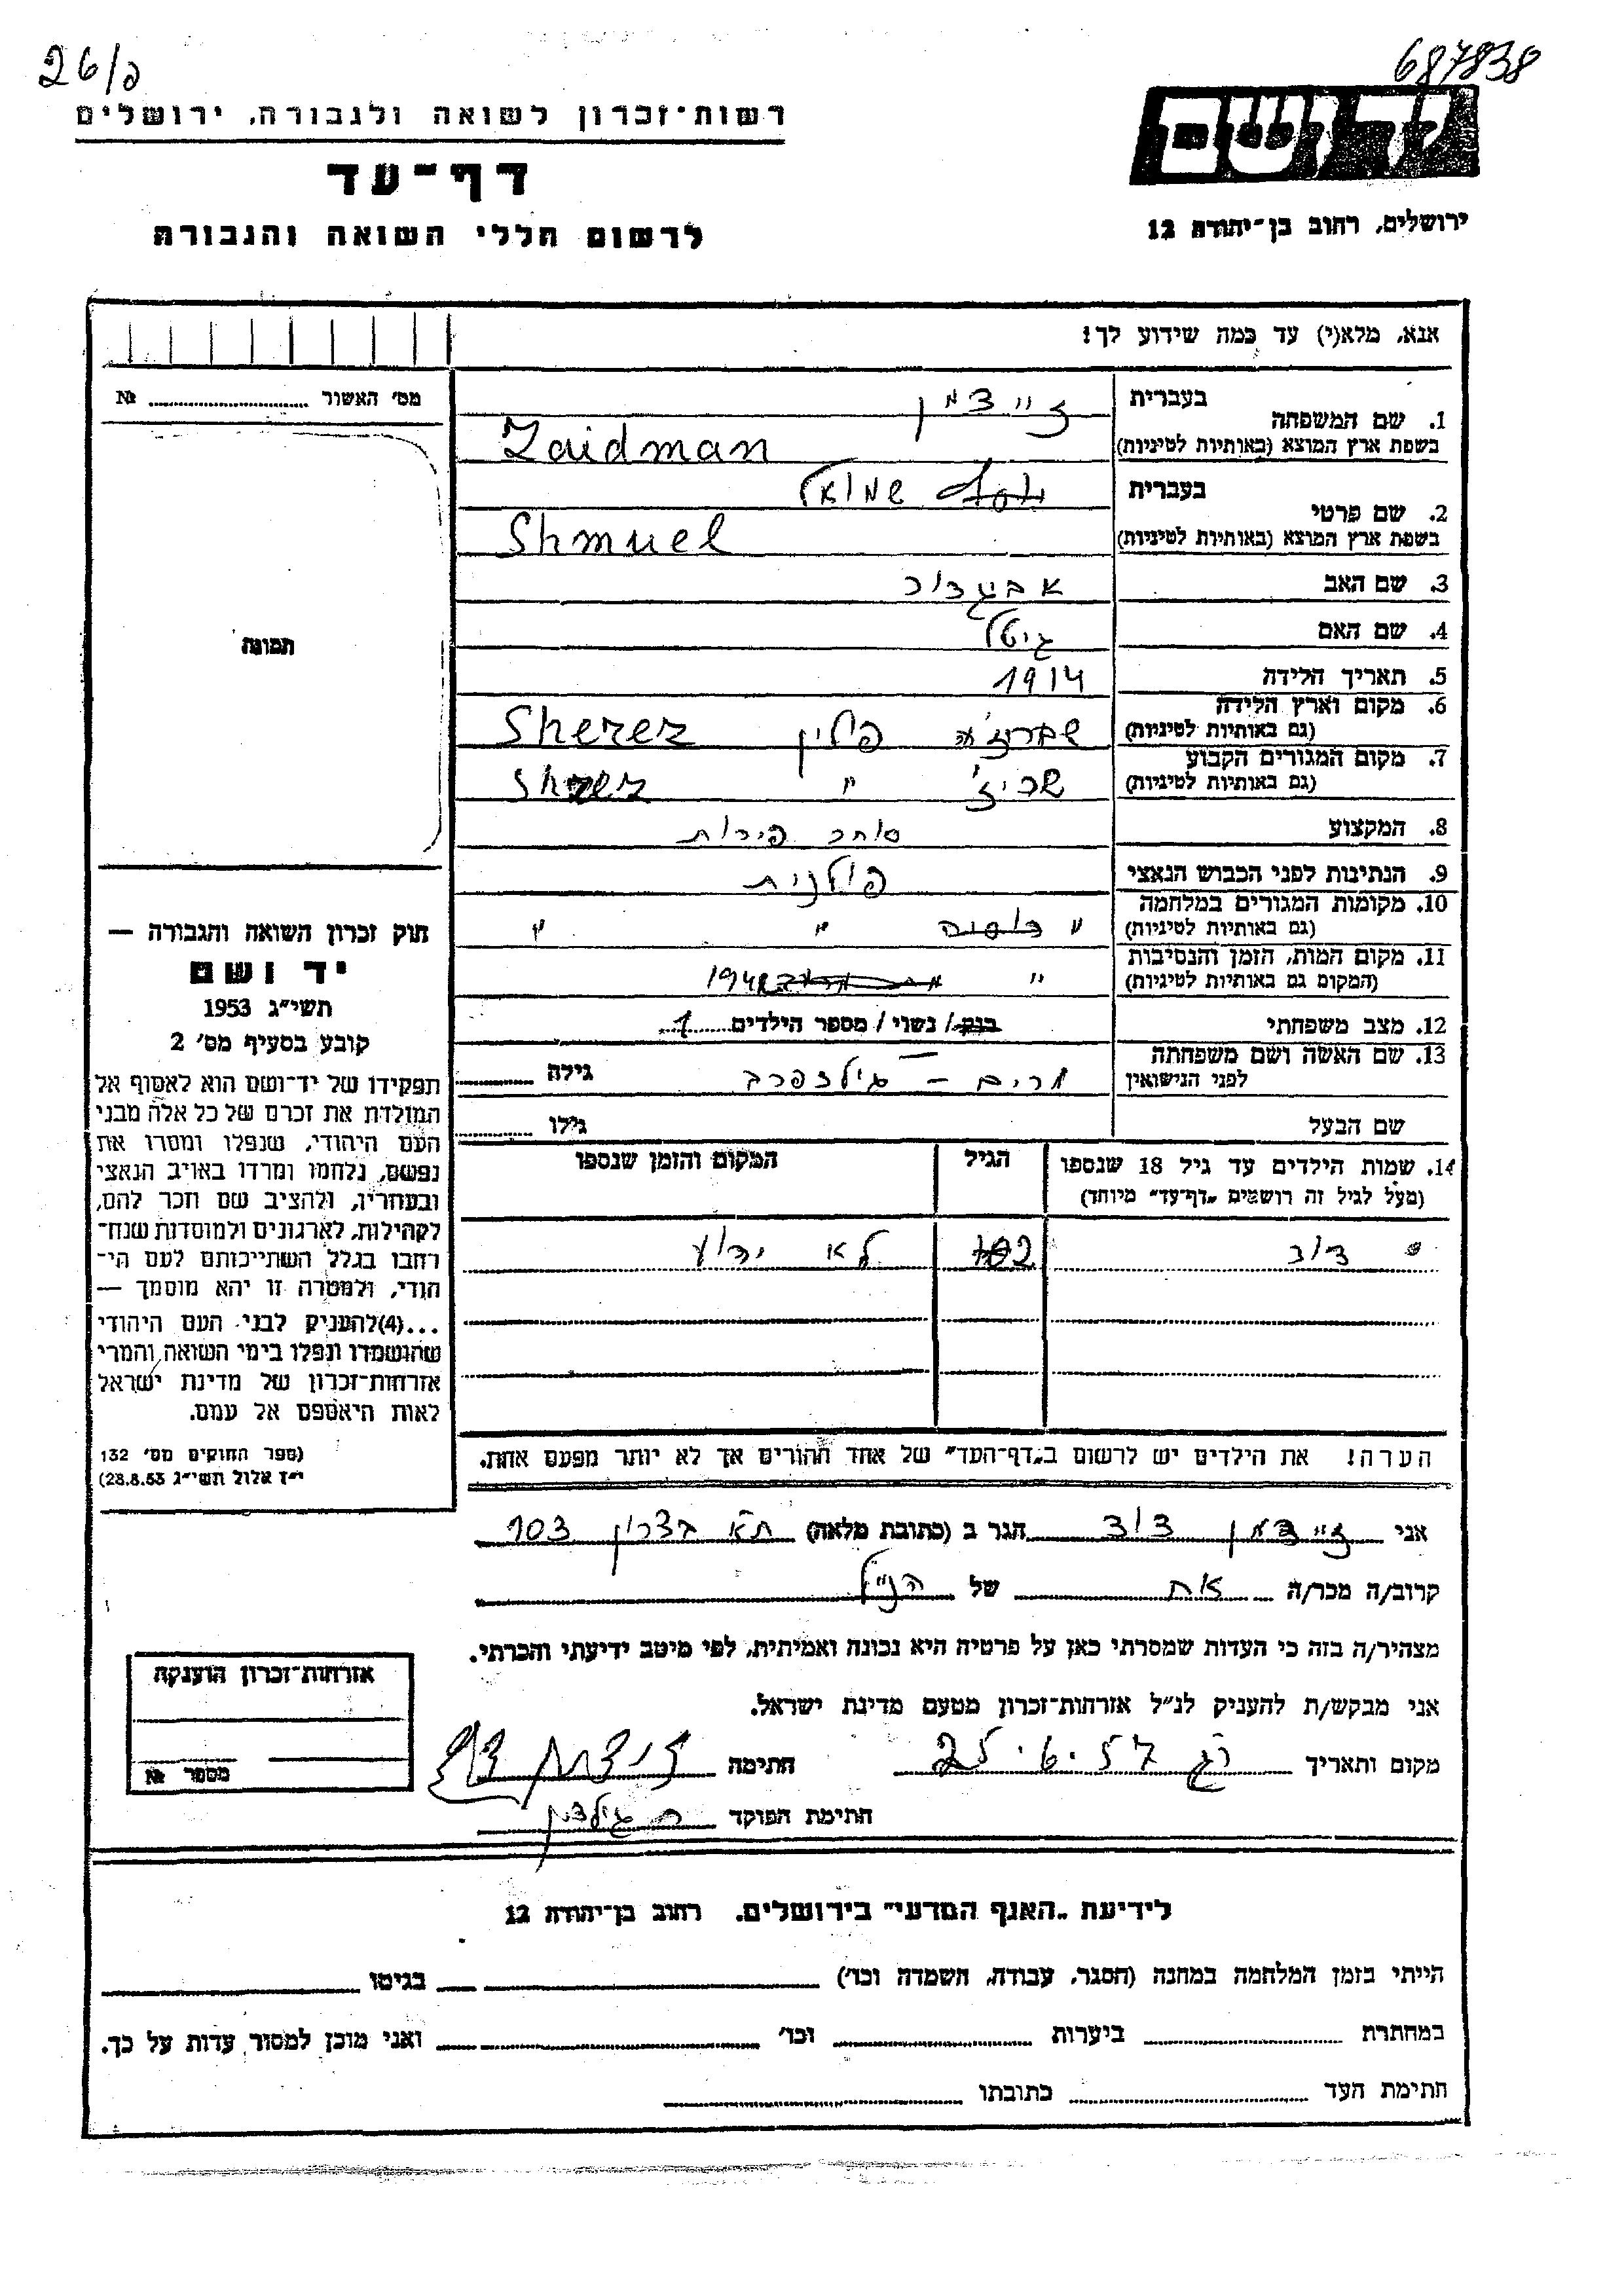 687838
26/פ
יד ושם
רשות־זכרון לשואה ולגבורה, ירושלים
דף־עד
ירושלים, רחוב בן־יהודה 12
לרשום חללי השואה והגבורה
אנא, מלא(י) עד כמה שידוע לך!
מס' האשור № 
1. שם המשפחה
בעברית זיידמן
בשפת ארץ המוצא (באותיות לטיניות) Zaidman
2. שם פרטי
בעברית שמואל
בשפת ארץ המוצא (באותיות לטיניות) Shmuel
3. שם האב אביגדור
4. שם האם גיטל
5. תאריך הלידה 1914
6. מקום וארץ הלידה
(גם באותיות לטיניות) פולין Sherez
7. מקום המגורים הקבוע
(גם באותיות לטיניות) " 
8. המקצוע סוחר פירות
9. הנתינות לפני הכבוש הנאצי פולנית
10. מקומות המגורים במלחמה
(גם באותיות לטיניות) " " "
11. מקום המות, הזמן והנסיבות
(המקום גם באותיות לטיניות) " 1942
12. מצב משפחתי רווק / נשוי / מספר הילדים 1
13. שם האשה ושם משפחתה
לפני הנישואין מרים – גילדפרב גילה
שם הבעל גילו
14. שמות הילדים עד גיל 18 שנספו הגיל המקום והזמן שנספו
(מעל לגיל זה רושמים "דף־עד" מיוחד)
דוד 2 לא ידוע
הערה! את הילדים יש לרשום ב"דף־העד" של אחד ההורים אך לא יותר מפעם אחת.
תמונה
חוק זכרון השואה והגבורה —
יד ושם
תשי"ג 1953
קובע בסעיף מס' 2
תפקידו של יד־ושם הוא לאסוף אל
המולדת את זכרם של כל אלה מבני
העם היהודי, שנפלו ומסרו את
נפשם, נלחמו ומרדו באויב הנאצי
ובעוזריו, ולהציב שם וזכר להם,
לקהילות, לארגונים ולמוסדות שנח־
רבו בגלל השתייכותם לעם הי־
הודי, ולמטרה זו יהא מוסמך —
...(4)להעניק לבני העם היהודי
שהושמדו ונפלו בימי השואה והמרי
אזרחות־זכרון של מדינת ישראל
לאות היאספם אל עמם.
(ספר החוקים מס' 132
י"ז אלול תשי"ג 28.8.53)
אני זיידמן דוד הגר ב (כתובת מלאה) ת"א בצרון 103
קרוב/ה מכר/ה אח של הנ"ל
מצהיר/ה בזה כי העדות שמסרתי כאן על פרטיה היא נכונה ואמיתית, לפי מיטב ידיעתי והכרתי.
אני מבקש/ת להעניק לנ"ל אזרחות־זכרון מטעם מדינת ישראל.
מקום ותאריך רג 25.6.57 חתימה זידמן דוד
חתימת הפוקד
אזרחות־זכרון הוענקה
מספר №
לידיעת "האגף המדעי" בירושלים, רחוב בן־יהודה 12
הייתי בזמן המלחמה במחנה (הסגר, עבודה, השמדה וכו') בגיטו
במחתרת ביערות וכו' ואני מוכן למסור עדות על כך.
חתימת העד כתובתו